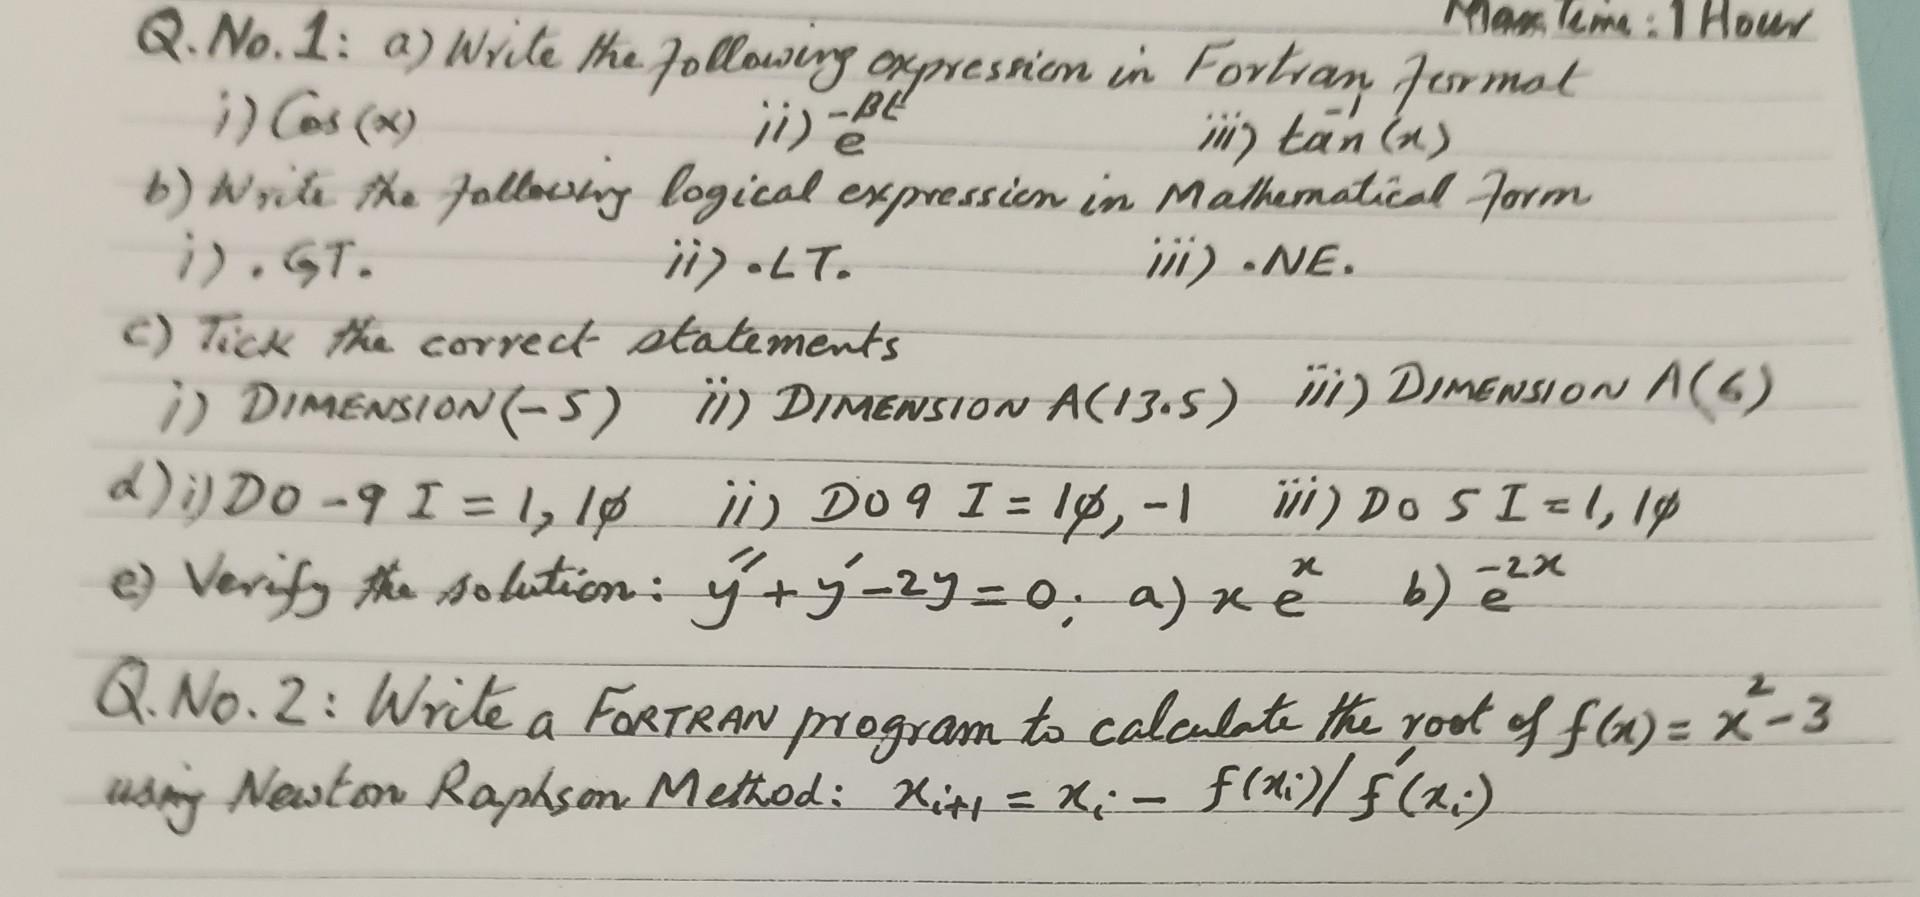 Max. Time: 1 Hour
Q. No. 1: a) Write the following expression in Fortran format
i) Cos(x) ii) e^{-βt} iii) tan^{-1}(x)
b) Write the following logical expression in Mathematical form
i) .GT. ii) .LT. iii) .NE.
c) Tick the correct statements
i) DIMENSION(-5) ii) DIMENSION A(13.5) iii) DIMENSION A(6)
d) i) DO -9 I = 1, 1φ ii) DO 9 I = 1φ, -1 iii) DO 5 I = 1, 1φ
e) Verify the solution: y'' + y' - 2y = 0; a) x e^{x} b) e^{-2x}
Q. No. 2: Write a FORTRAN program to calculate the root of f(x) = x^{2} - 3
using Newton Raphson Method: x_{i+1} = x_{i} - f(x_{i})/f'(x_{i})